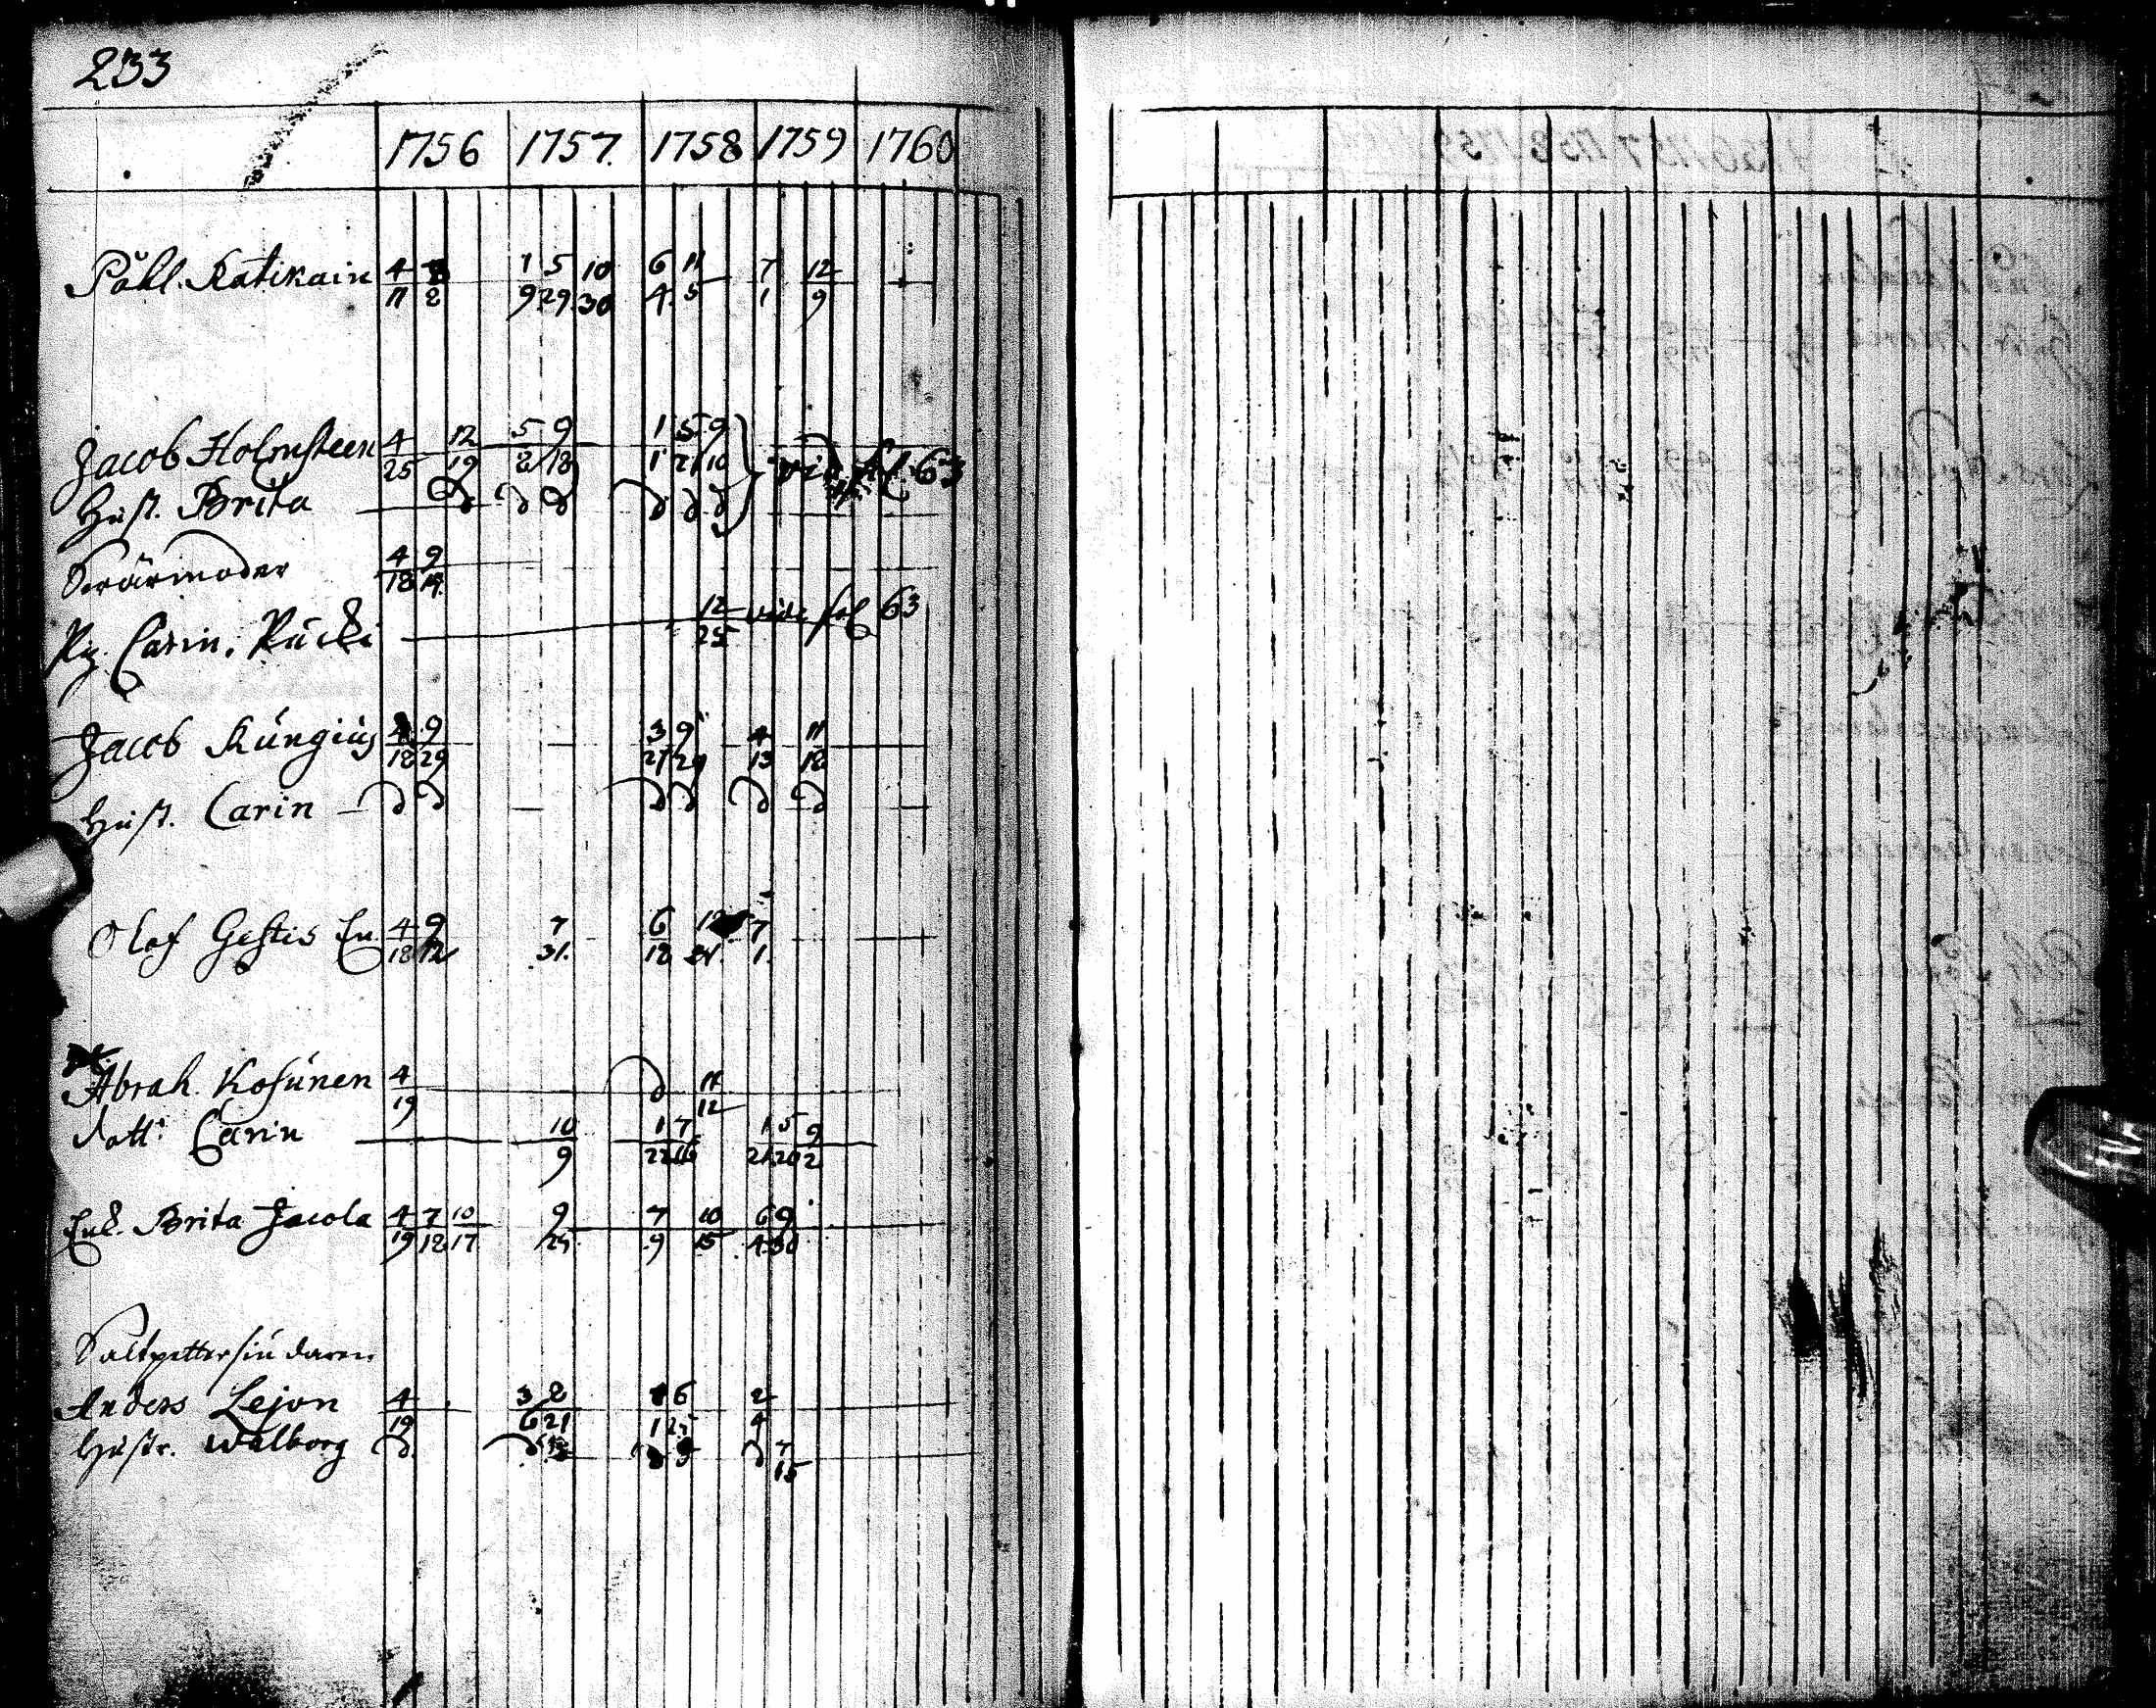 233
1756 1757. 1758 1759 1760
Påhl. Ratikain 4/11 8/2 1/9 5/29 10/30 6/4 11/5 7/1 12/9
Jacob Holmsteen 4/25 12/19 5/2 9/18 1/1 5/21 9/10 vid fol. 63
Hust. Brita
Swärmoder 4/18 9/19
Pig. Carin. 12/25 vide fol 63
Jacob Kúngiús 4/18 9/29 3/27 9/29 4/13 11/18
Hust. Carin
Olof Gestis En. 4/18 9/12 7/31. 6/18 12/31 7/1.
Abrah. Kosúnen 4/19 11/12
dott: Carin 10/9 1/22 7/16 1/21 5/20 9/2
Enk. Brita Jacola 4/19 7/18 10/17 9/29 7/9 10/15 6/4 9/30
Saltpettersiúdaren
Anders Lejon 4/19 3/6 8/21 1/1 6/25 2/4
Hustr. Walborg 7/15